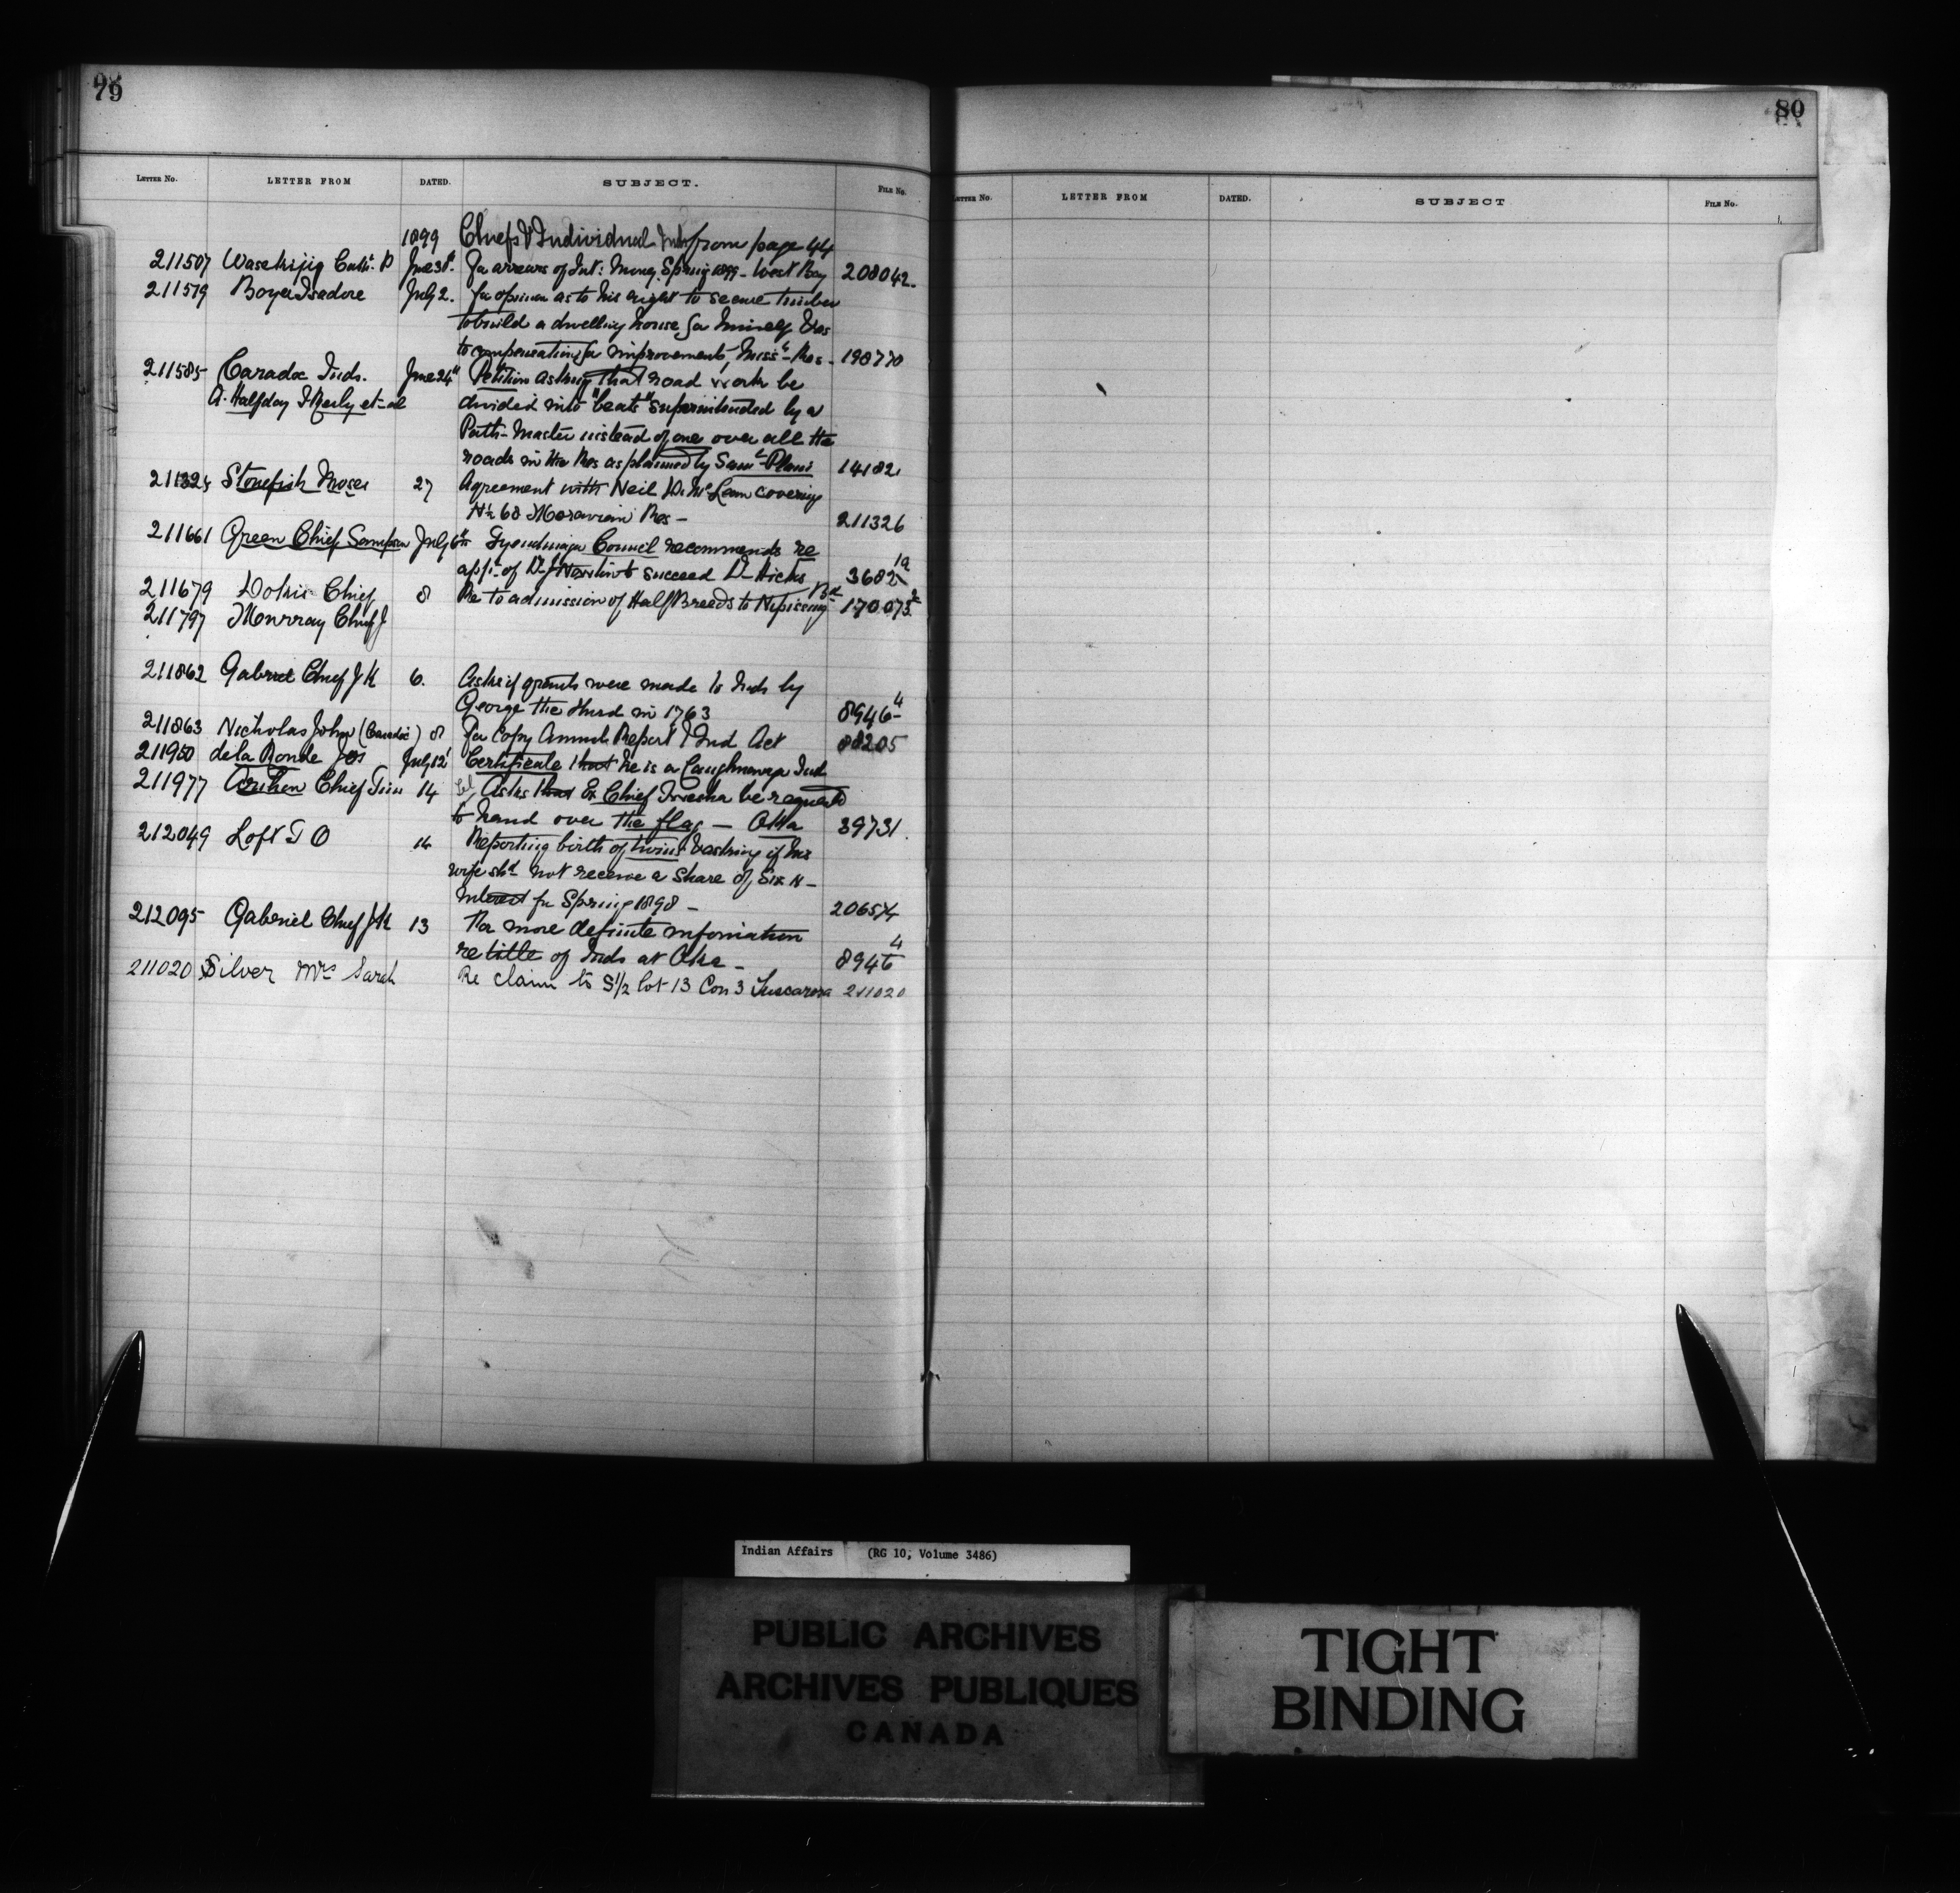 79
LETTER NO. LETTER FROM DATED. SUBJECT. FILE NO.
1899 Chiefs & Individual Inds from page 44
211507 Wasekijig Cath. P June 30th For arrears of Int: Money Spring 1899 - West Bay 208042
211579 Boyer Isadore July 2. For opinion as to his right to secure timber
to build a dwelling house for himself & as
to compensation for improvements, Miss. Res - 198770
211585 Caradoc Inds. June 24th Petition asking that road work be
A. Halfday et al divided into "beats" superintended by a
Path-Master instead of one over all the
roads in the Res as planned by Saml Plain 14182
Stonefish Moses 27 Agreement with Neil D. McLean covering
N½ 68 Moravian Res - 211326
211661 Green Chief Sampson July 6th Tyendinaga Council recommends re
appt. of Dr Newton to succeed Dr Hicks 3682 19
211679 Dokis Chief 8 Re to admission of Half Breeds to Nipissing Bd 170.073 2
211797 Murray Chief J
211862 Gabriel Chief J K 6. Asks if grants were made to Inds by
George the third in 1763 8946 4
211863 Nicholas John (Caradoc) 8 For Copy Annual Report & Ind Act 88205
211950 de la Ronde Jos July 12 Certificate that he is a Caughnawaga Ind
211977 Chief Tim 14 Asks that Ex Chief be requested
to hand over the flag — Oka 39731.
212049 Loft T O 14 Reporting birth of twins & asking if his
wife shd. not receive a share of Six N -
Interest for Spring 1898 - 20657/4
212095 Gabriel Chief J K 13 For more definite information
re title of Inds at Oka - 8946 4
211020 Silver Mrs Sarah Re claim to S½ lot 13 Con 3 Tuscarora 211020
80
LETTER NO. LETTER FROM DATED. SUBJECT FILE NO.
Indian Affairs (RG 10, Volume 3486)
PUBLIC ARCHIVES
ARCHIVES PUBLIQUES
CANADA
TIGHT
BINDING